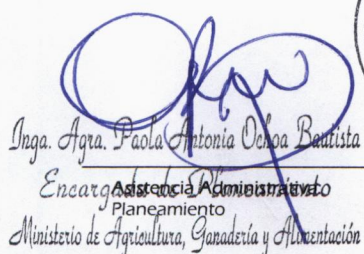 Inga. Agra. Paola Antonia Ochoa Bautista
Encargada de Planeamiento
Asistencia Administrativa.
Planeamiento
Ministerio de Agricultura, Ganadería y Alimentación